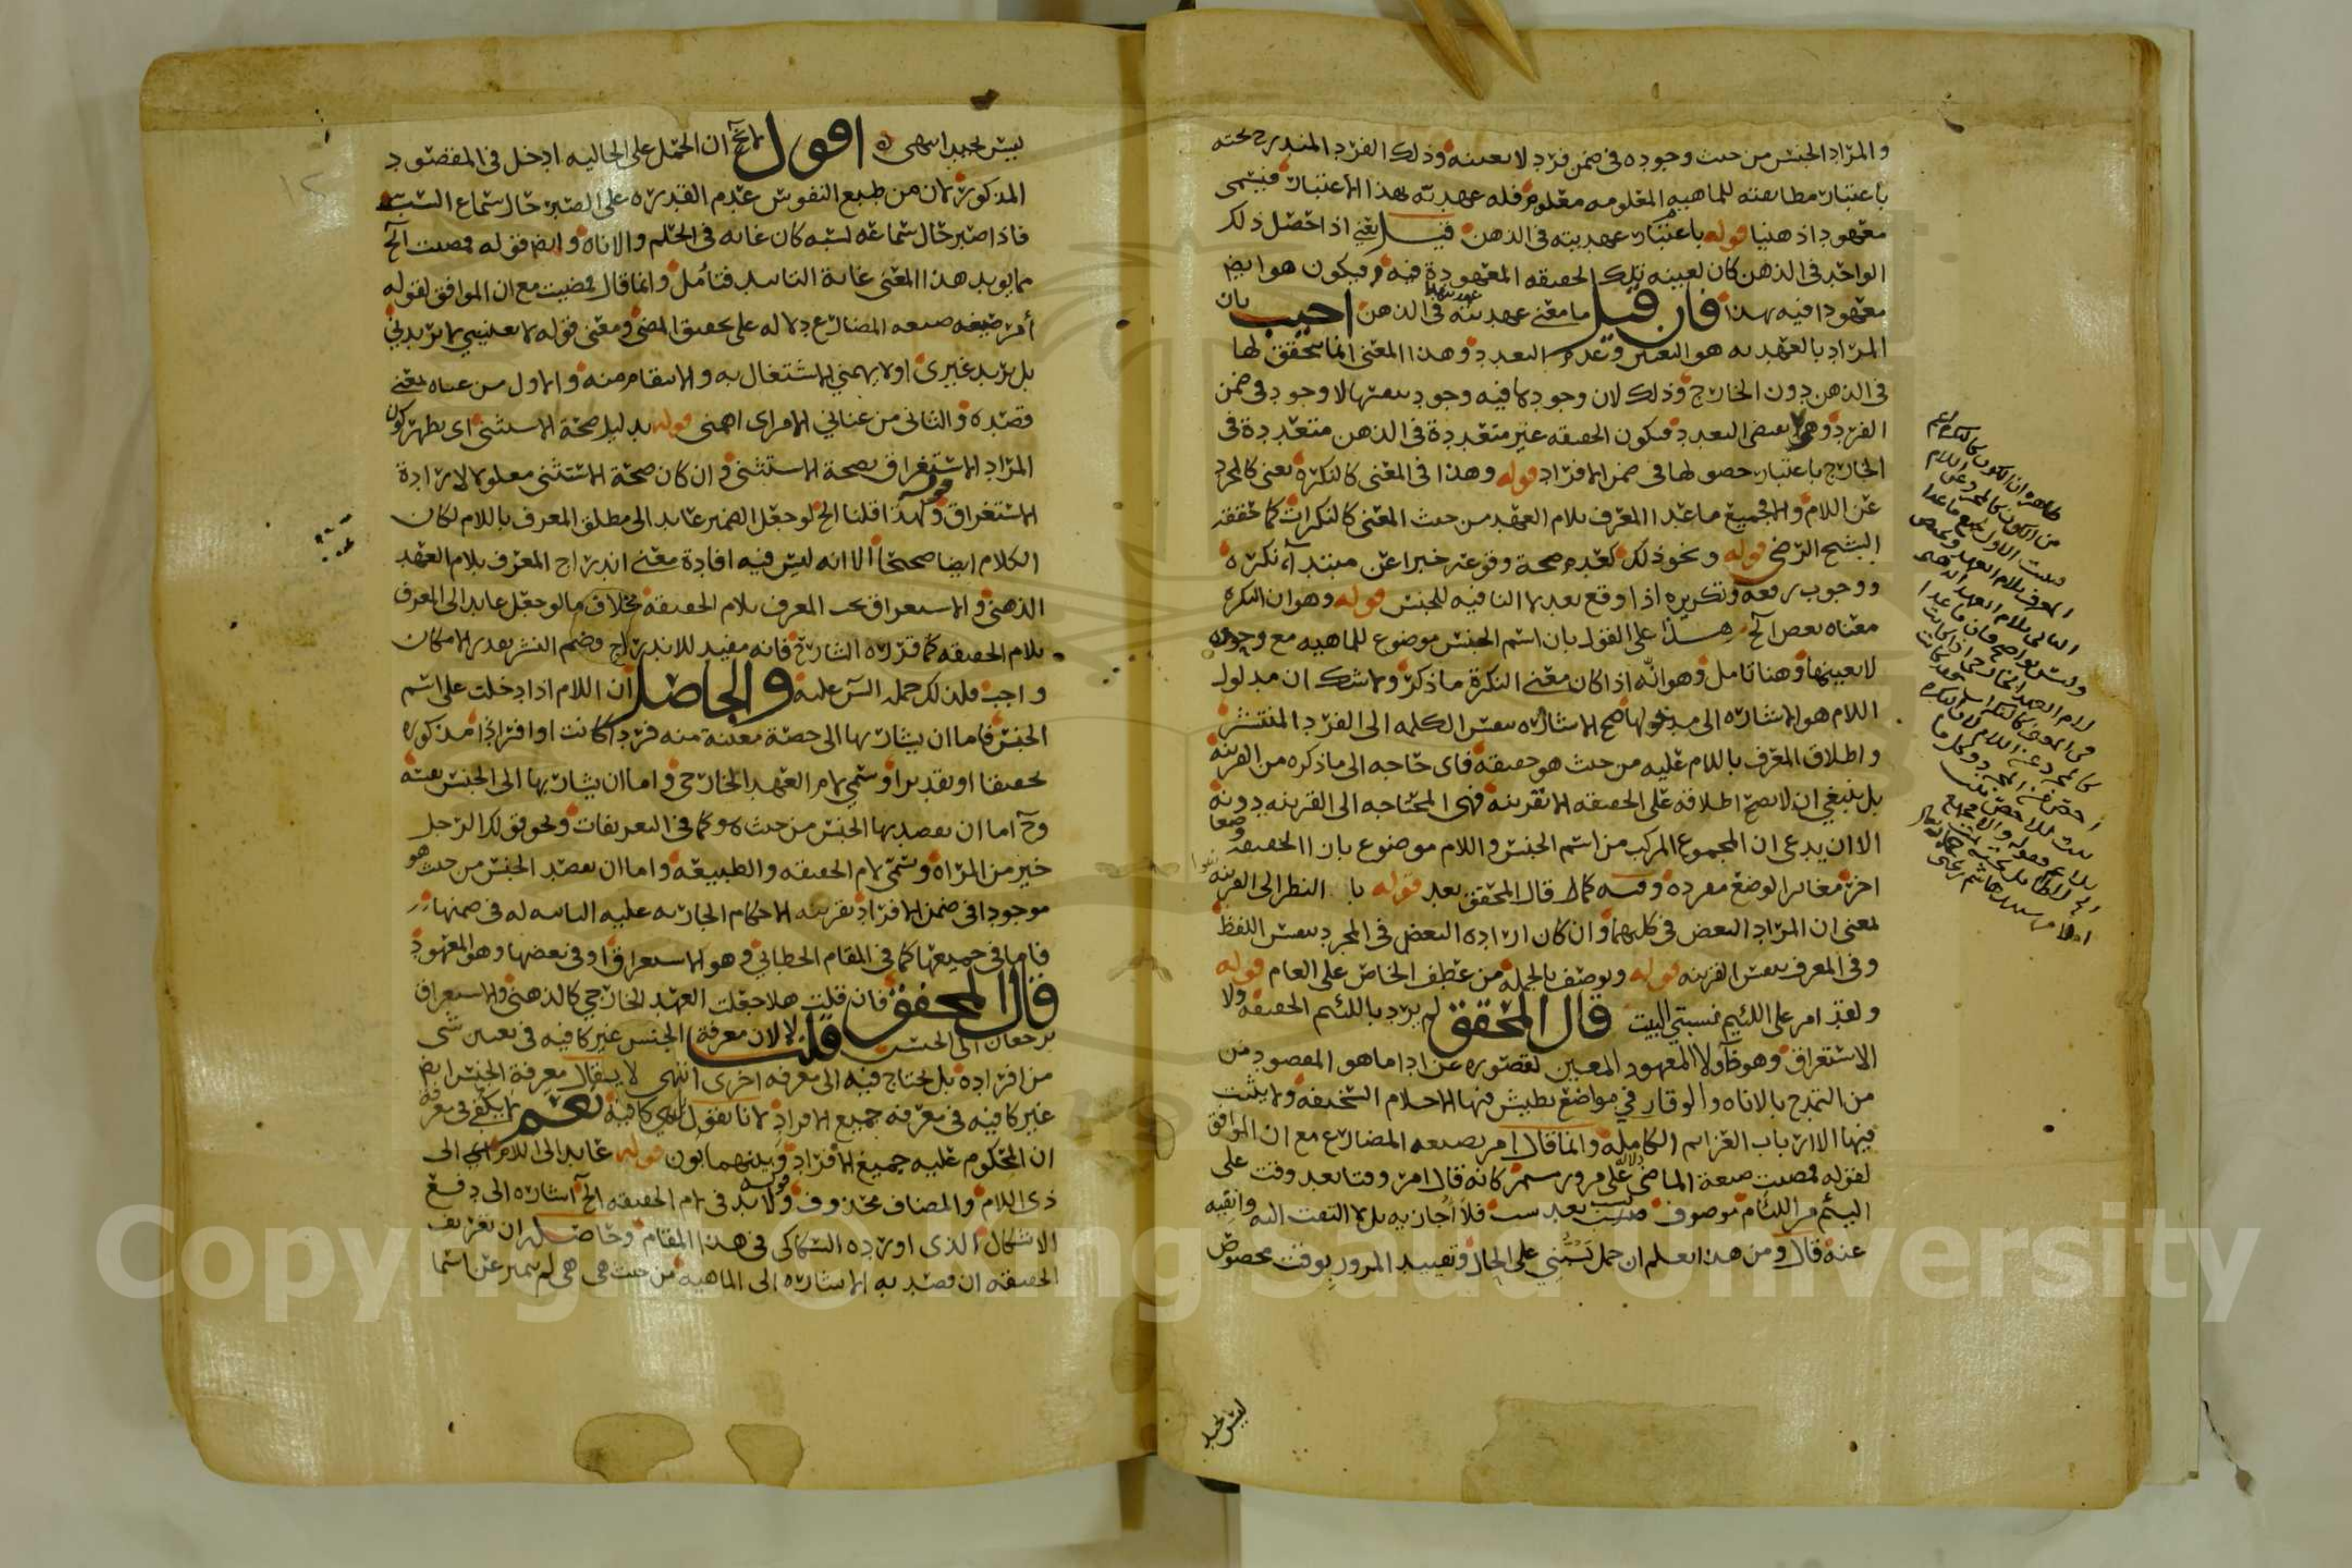 والمراد الجنس من حيث وجوده في ضمن فرد لا بعينه وذلك الفرد المندرج تحته
باعتبار مطابقته للماهيه المعلومه معلوم فله عهديه بهذا الاعتبار فيسمى
معهودا ذهنيا قوله باعتبار عهديته في الذهن قيل يعني اذا حصل ذلك
الواحد في الذهن كان لعينه تلك الحقيقه المعهودة فيه فيكون هو ايض
معهودا فيه بهذا فان قيل ما معنى عهديته في الذهن اجيب بان
المراد بالعهديه هو التعين وعدم التعدد وهذا المعنى انما يتحقق لها
في الذهن دون الخارج وذلك لان وجودها فيه وجود بنفسها لا وجود في ضمن
الفرد وهي لا تقتضي التعدد فيكون الحقيقه غير متعددة في الذهن متعددة في
الخارج باعتبار حصولها في ضمن الافراد قوله وهذا في المعنى كالنكره يعني كالمجرد
عن اللام والجميع ما عدا المعرف بلام العهد من حيث المعنى كالنكرات كما حققه
الشيخ الرضي قوله ونحو ذلك كعدم صحة وقوعه خبرا عن مبتدا نكره
ووجوب رفعه وتكريره اذا وقع بعد لا النافيه للجنس قوله وهو ان النكره
معناه بعض الخ هذا على القول بان اسم الجنس موضوع للماهيه مع وحده
لا بعينها وهنا تامل وهو انه اذا كان معنى النكرة ما ذكر ولا شك ان مدلول
اللام هو الاشاره الى مدخولها صح الاشاره بنفس الكلمه الى الفرد المنتشر
واطلاق المعرف باللام عليه من حيث هو حقيقه فاى حاجه الى ما ذكره من القرينه
بل ينبغي ان لا يصح اطلاقه على الحقيقه الا بقرينه فهي المحتاجه الى القرينه دونه
الا ان يدعى ان المجموع المركب من اسم الجنس واللام موضوع بازا الحقيقه وضعا
اخر مغاير الوضع مفرده وفيه كما قال المحقق بعد قوله بالنظر الى القرينه
لمعنى ان المراد البعض في كليهما وان كان اراده البعض في المجرد بنفس اللفظ
وفي المعرف بنفس القرينه قوله ويوصف بالجمله من عطف الخاص على العام قوله
ولقد امر على اللئيم نسبتي البيت قال المحقق لم يرد باللئيم الحقيقه ولا
الاستغراق وهو ظ ولا المعهود المعين لقصوره عن ادا ما هو المقصود من
من التمدح بالاناه والوقار في مواضع يطيش فيها الاحلام السخيفه ولا يثبت
فيها الا ارباب العزايم الكامله وانما قال امر بصيغه المضارع مع ان الموافق
لقوله فمضيت صيغة الماضي دلالة على مرور مستمر كانه قال امر وقتا بعد وقت على
لئيم من اللئام موصوف بسب بعد سب فلا اجازيه بل لا التفت اليه وانقيه
عنه قال ومن هذا يعلم ان حمل يسبني على الحال وتقييد المرور بوقت مخصوص
ليس بجيد
ليس بجيد انتهى اقول لا يخ ان الحمل على الحاليه ادخل في المقصود
المذكور لان من طبع النفوس عدم القدره على الصبر حال سماع السب
فاذا صبر حال سماعه لسبه كان غايه في الحلم والاناه وايض قوله فمضيت الخ
مما يويد هذا المعنى غاية التاييد فتامل وانما قال فمضيت مع ان الموافق لقوله
أمر صيغه المضارع دلاله على تحقيق المضى ومعنى قوله لا يعنيني لا يريدني
بل يريد غيري او لا يهمني الاشتغال به والانتقام منه والاول من عناه يعني
قصده والثاني من عناني الامر اى اهمنى قوله بدليل صحة الاستثنى اى يظهر كون
المراد الاستغراق بصحة الاستثنى وان كان صحة الاستثنى معلولا لارادة
الاستغراق قوله ولهذا قلنا الخ لو جعل الضمير عايد الى مطلق المعرف باللام لكان
الكلام ايضا صحيحا الا انه ليس فيه افادة معنى اندراج المعرف بلام العهد
الذهني والاستغراق تحت المعرف بلام الحقيقه بخلاف ما لو جعل عايد الى المعرف
بلام الحقيقه كما قرره الشارح فانه مفيد للاندراج وضم النشر بقدر الامكان
واجب فلذلك حمله الش عليه والحاصل ان اللام اذا دخلت على اسم
الجنس فاما ان يشار بها الى حصة معينة منه فردا كانت او افرادا مذكوره
تحقيقا او تقديرا وسمي لام العهد الخارجي واما ان يشار بها الى الجنس نفسه
وح اما ان يقصد بها الجنس من حيث هو كما في التعريفات ونحو قولك الرجل
خير من المراه وسمى لام الحقيقه والطبيعه واما ان يقصد الجنس من حيث هو
موجود في ضمن الافراد بقرينه الاحكام الجاريه عليه الثابته له في ضمنها
فاما في جميعها كما في المقام الخطابي وهو الاستغراق او في بعضها وهو المعهود
قال المحقق فان قلت هلا جعلت العهد الخارجي كالذهني والاستغراق
يرجعان الى الجنس قلت لان معرفة الجنس غير كافيه في تعيين شى
من افراده بل يحتاج فيه الى معرفه اخرى انتهى لا يقال معرفة الجنس ايض
غير كافيه في معرفه جميع الافراد لانا نقول هي كافيه نعم لا يكفي في معرفة
ان المحكوم عليه جميع الافراد وبينهما بون قوله عايد الى اللام اي الى
ذى اللام والمضاف محذوف قوله ولا بد في لام الحقيقه الخ اشاره الى دفع
الاشكال الذى اورده السكاكى في هذا المقام وحاصله ان تعريف
الحقيقه ان قصد به الاشاره الى الماهيه من حيث هي هي لم يتميز عن اسما
Copyright © King Saud University